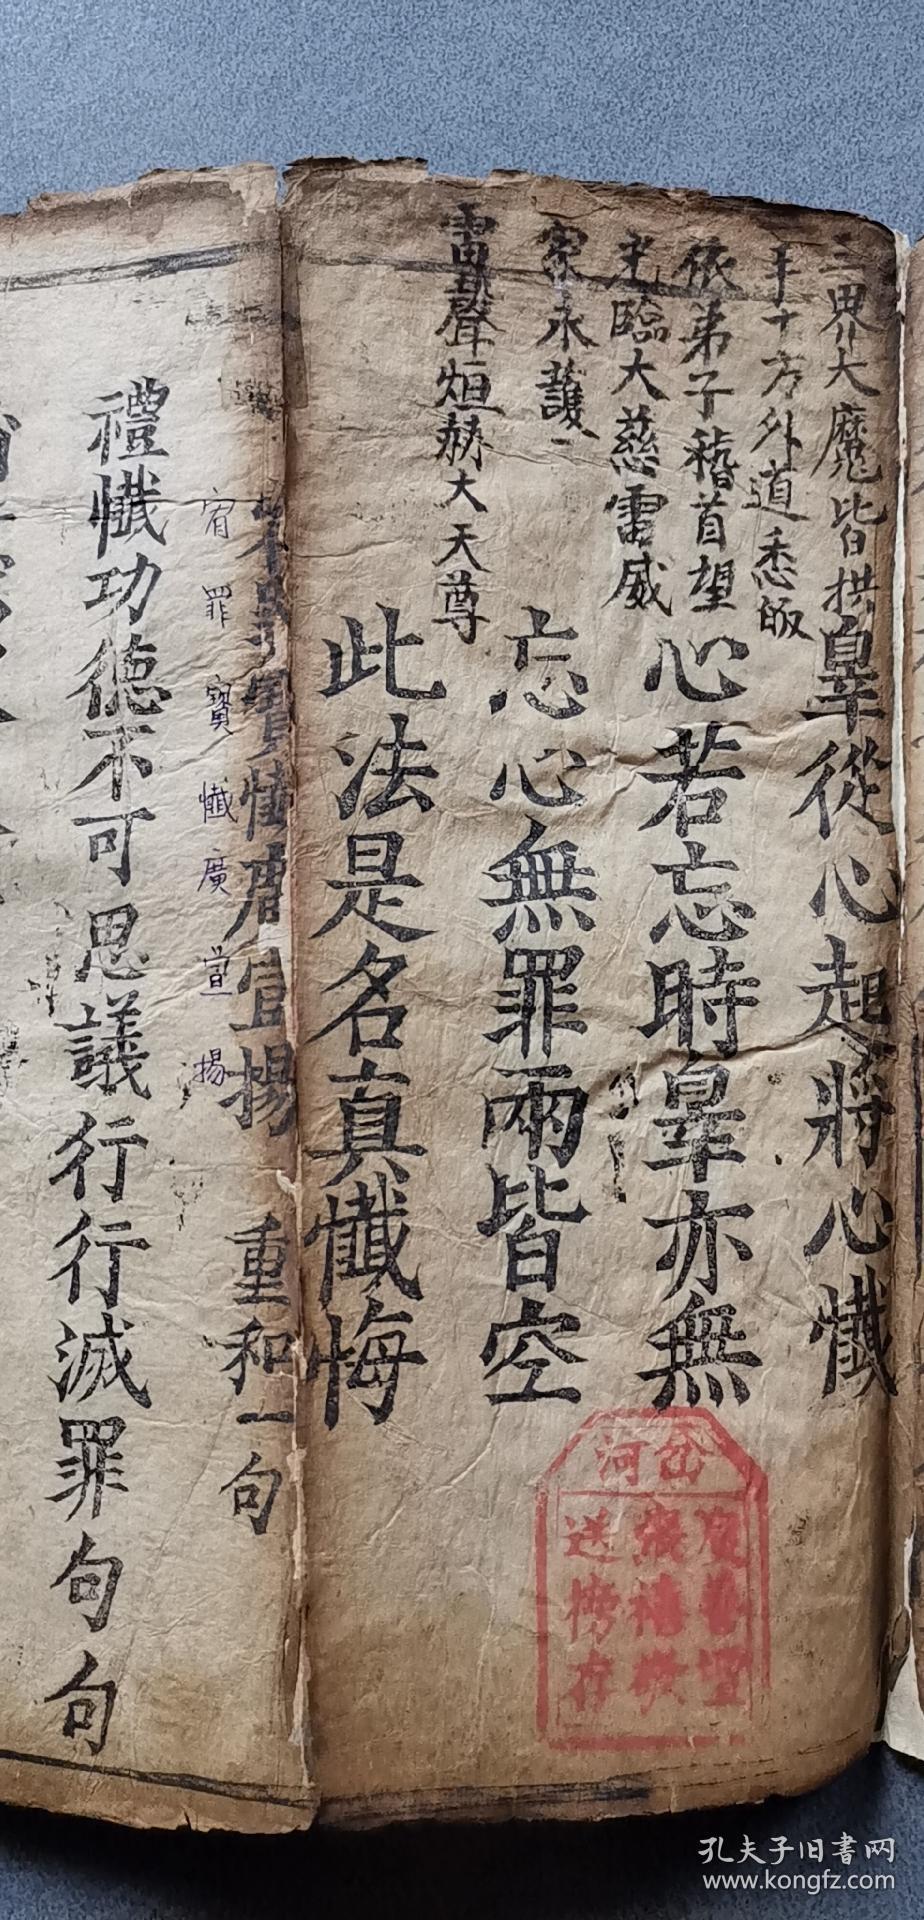 三界大魔皆拱
手十方外道悉皈
依弟子稽首望
光臨大慈雷威
家永護
雷聲烜赫大天尊
辠從心起將心懺
心若忘時辠亦無
忘心無罪兩皆空
此法是名真懺悔
寶懺廣宣揚 重和一句
宥罪寶懺廣宣揚
禮懺功德不可思議行行滅罪句句
岔河
送
存
孔夫子旧书网
www.kongfz.com